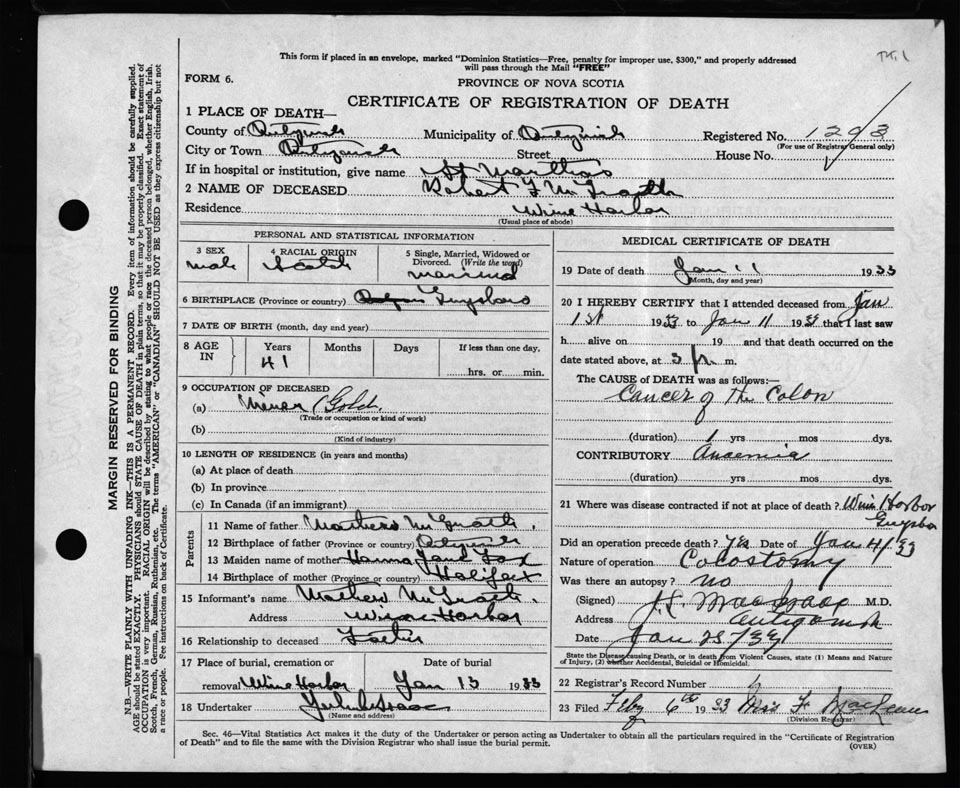 This form if placed in an envelope, marked "Dominion Statistics—Free, penalty for improper use, $300," and properly addressed
will pass through the Mail "FREE"
FORM 6.
PROVINCE OF NOVA SCOTIA
CERTIFICATE OF REGISTRATION OF DEATH
1 PLACE OF DEATH—
County of Municipality of Registered No. 1293
(For use of Registrar General only)
City or Town Street House No.
If in hospital or institution, give name St Marthas
2 NAME OF DECEASED Robert
Residence Wine Harbor
(Usual place of abode)
PERSONAL AND STATISTICAL INFORMATION
3 SEX
male
4 RACIAL ORIGIN
Scotch
5 Single, Married, Widowed or
Divorced. (Write the word)
married
6 BIRTHPLACE (Province or country) Guysboro
7 DATE OF BIRTH (month, day and year)
8 AGE IN
Years Months Days If less than one day,
41 hrs. or min.
9 OCCUPATION OF DECEASED
(a) Miner (Gold)
(Trade or occupation or kind of work)
(b)
(Kind of industry)
10 LENGTH OF RESIDENCE (in years and months)
(a) At place of death
(b) In province
(c) In Canada (if an immigrant)
Parents
11 Name of father
12 Birthplace of father (Province or country)
13 Maiden name of mother Hanna Jane Fox
14 Birthplace of mother (Province or country) Halifax
15 Informant's name
Address Wine Harbor
16 Relationship to deceased
17 Place of burial, cremation or Date of burial
removal Wine Harbor Jan 13 1933
18 Undertaker
(Name and address)
MEDICAL CERTIFICATE OF DEATH
19 Date of death Jan 11 1933
(Month, day and year)
20 I HEREBY CERTIFY that I attended deceased from Jan
1st 1933 to Jan 11 1933 that I last saw
h alive on 19 and that death occurred on the
date stated above, at 3 p. m.
The CAUSE OF DEATH was as follows:—
Cancer of the Colon
(duration) 1 yrs mos dys.
CONTRIBUTORY Anaemia
(duration) yrs mos dys.
21 Where was disease contracted if not at place of death? Wine Harbor
Did an operation precede death? Yes Date of Jan 4/33
Nature of operation Colostomy
Was there an autopsy? no
(Signed) M.D.
Address Antigonish
Date Jan 25/33
State the Disease causing Death, or in death from Violent Causes, state (1) Means and Nature
of Injury, (2) whether Accidental, Suicidal or Homicidal.
22 Registrar's Record Number
23 Filed Feby 6th 1933
(Division Registrar)
Sec. 46—Vital Statistics Act makes it the duty of the Undertaker or person acting as Undertaker to obtain all the particulars required in the "Certificate of Registration
of Death" and to file the same with the Division Registrar who shall issue the burial permit.
(OVER)
MARGIN RESERVED FOR BINDING
N.B.—WRITE PLAINLY WITH UNFADING INK—THIS IS A PERMANENT RECORD. Every item of information should be carefully supplied.
AGE should be stated EXACTLY. PHYSICIANS should STATE CAUSE OF DEATH in plain terms, so that it may be properly classified. Exact statement of
OCCUPATION is very important. RACIAL ORIGIN will be described by stating to what people or race the deceased person belonged, whether English, Irish,
Scotch, French, German, Russian, Ruthenian, etc. The terms "AMERICAN" or "CANADIAN" SHOULD NOT BE USED as they express citizenship but not
a race or people. See instructions on back of Certificate.